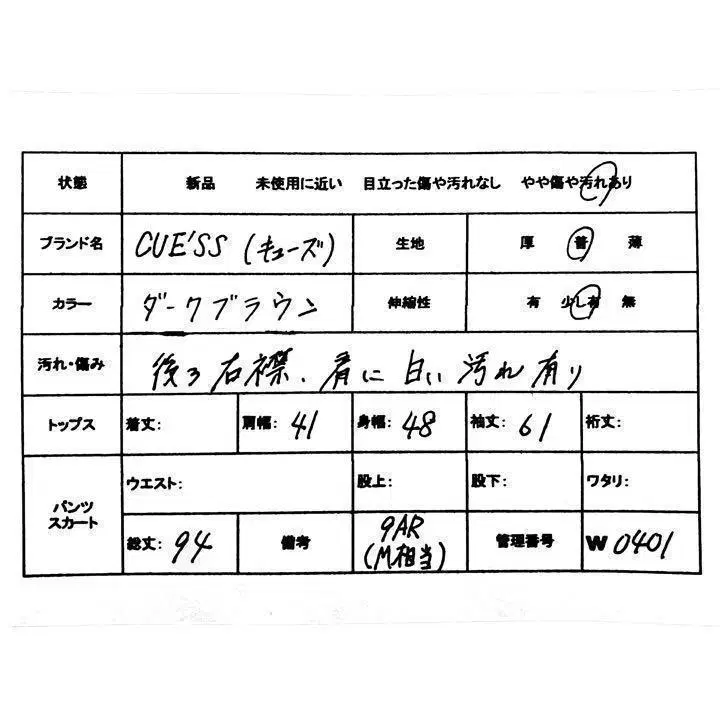 状態 新品 未使用に近い 目立った傷や汚れなし やや傷や汚れあり
ブランド名 CUE'SS (キューズ) 生地 厚 普 薄
カラー ダークブラウン 伸縮性 有 少し有 無
汚れ・傷み 後ろ右襟、肩に白い汚れ有り
トップス 着丈: 肩幅: 41 身幅: 48 袖丈: 61 裄丈:
パンツ
スカート
ウエスト: 股上: 股下: ワタリ:
総丈: 94 備考 9AR
(M相当) 管理番号 W 0401